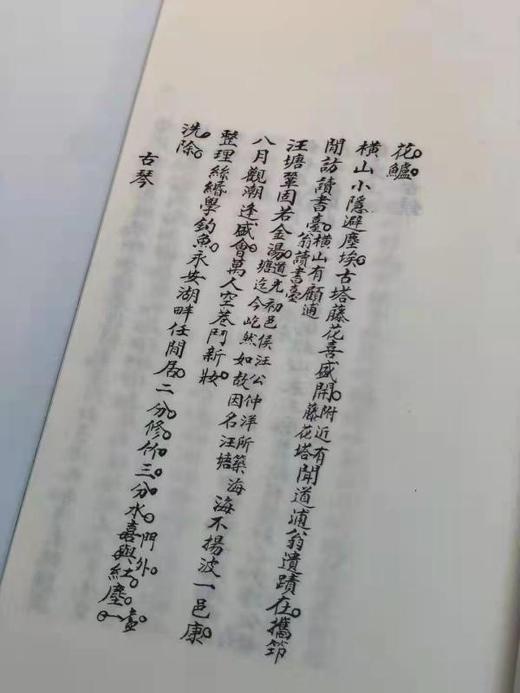 花鱸。
橫山小隱避塵埃。古塔藤花喜盛開。附近有藤花塔聞道逋翁遺蹟在攜筇
閒訪讀書臺。橫山有顧逋翁讀書臺
汪塘鞏固若金湯。道光初邑侯汪公仲洋所築海塘迄今屹然如故因名汪塘海不揚波一邑康。
八月觀潮逢盛會萬人空巷鬥新妝
整理絲緡學釣魚永安湖畔任閒居。二分修竹三分水。門外
洗除。
古琴